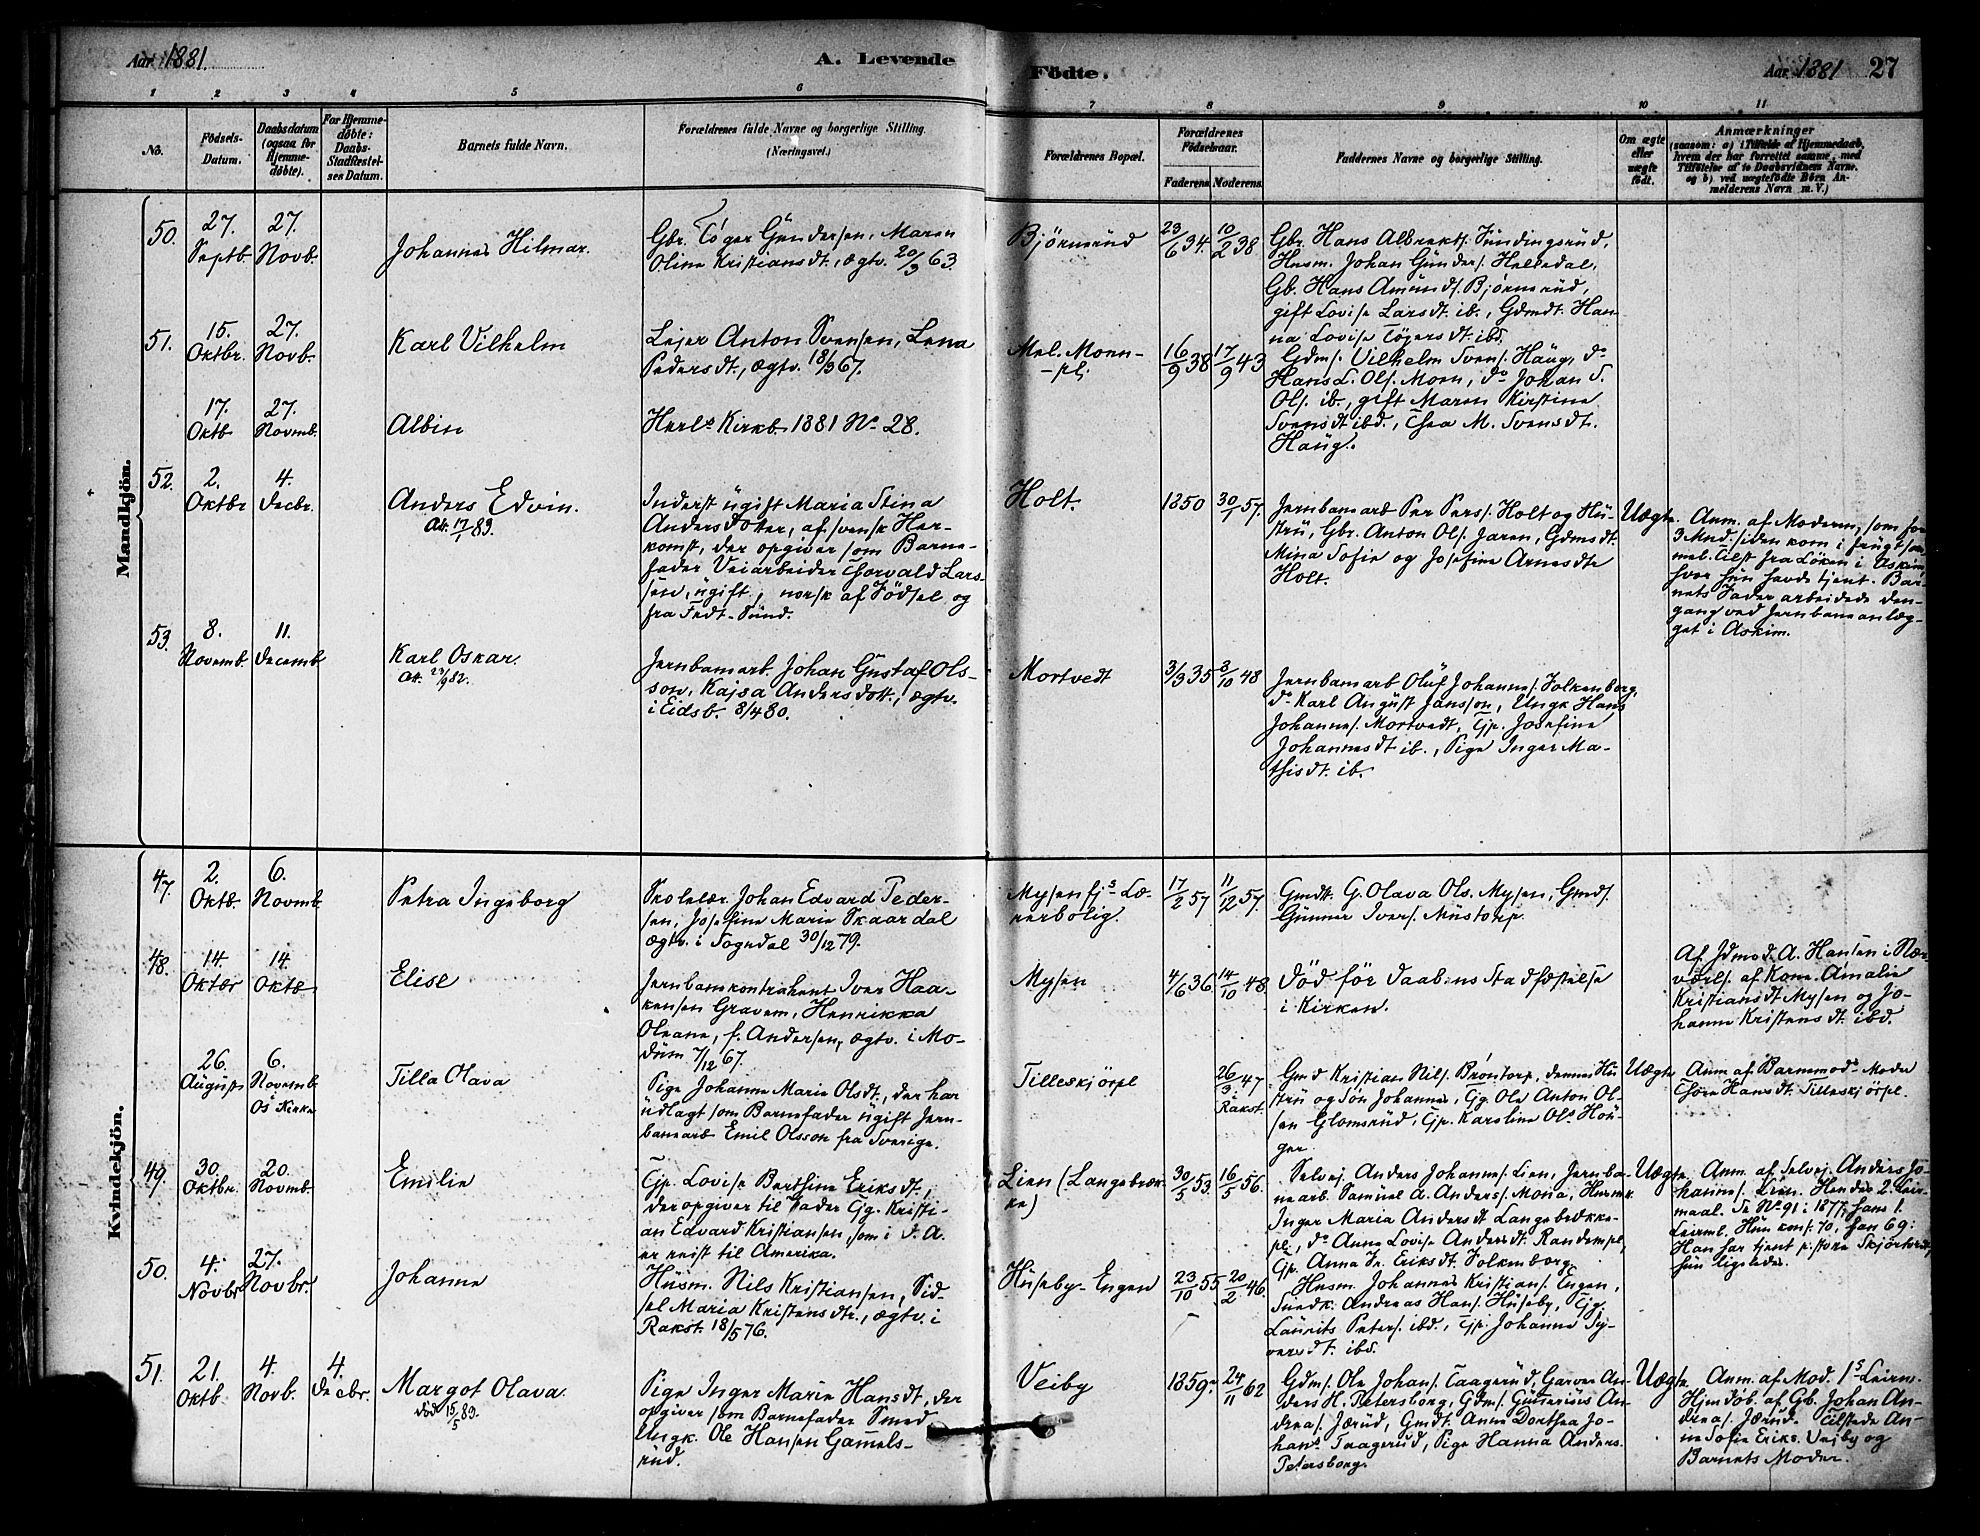 Aar 1881.
A. Levende
Födte.
Aar 1881
27
1 2 3 4 5 6 7 8 9 10 11
No.
Födsels-
Datum.
Daabsdatum
(ogsaa for
Hjemme-
døbte).
For Hjemme-
døbte:
Daabs-
Stadfæstel-
ses Datum.
Barnets fulde Navn.
Forældrenes fulde Navne og borgerlige Stilling.
(Næringsvei.)
Forældrenes Bopæl.
Forældrenes
Födselsaar.
Faderens. Moderens.
Faddernes Navne og borgerlige Stilling.
Om ægte
eller
uægte
født.
Anmærkninger
(saasom: a) i Tilfælde af Hjemmedaab,
hvem der har forrettet samme, med
Tilføielse af to Daabsvidners Navne,
og b) ved uægtefødte Børn An-
melderens Navn m. V.)
Mandkjön.
50.
27.
Septb.
27.
Novb.
Johannes Hilmar.
Gbr. Töger Gundersen, Maren
Oline Kristiansdt., ægtv. 20/3 63.
Bjørnerud
23/6 34.
10/2 38
Gbr. Hans Albrekts. Sundingsrud,
Husm. Johan Gunders. Helledal,
Gb. Hans Amunds. Bjørnerud,
gift Lovise Larsdt. ib., Gdmdt. Han-
na Lovise Töjersdt. ibd.
51.
15.
Oktbr.
27.
Novb.
Karl Vilhelm
Lejer Anton Svensen, Lena
Pedersdt., ægtv. 18/3 67.
Mel. Moen-
-pl.
16/9 38
17/9 43
Gdms. Vilhelm Svens. Haug, do
Hans L. Ols. Moen, do Johan S.
Ols. ib., gift Maren Kirstine
Svensdt ibd., Thea M. Svensdt.
Haug.
17.
Oktb
27.
Novmb.
Albin
Herl. Kirkb. 1881 No 28.
52.
2.
Oktbr
4.
Decbr.
Anders Edvin.
Att. 17/1 89.
Inderst ugift Maria Stina
Anders Dotter, af svensk Her-
komst, der opgiver som Barne-
fader Veiarbeider Thorvald Lars-
sen, ugift, norsk af Födsel og
fra Fedt-Sund.
Holt.
1850
30/1 57.
Jernbanearb Per Pers. Holt og Hu-
stru, Gbr. Anton Ols. Jaren, Gdmsdt.
Mina Sofie og Josefine Arnesdtr
Holt.
Uægte.
Anm. af Moderen, som for
3 Mnd. siden kom i frugtsom-
mel. Tilst fra Löken i Askim
hvor hun havde tjent. Bar-
nets Fader arbeidede den-
gang ved Jernbaneanlæg-
get i Askim.
53.
8.
Novemb.
11.
Decemb
Karl Oskar.
Att. 27/9 82.
Jernbanearb. Johan Gustaf Ols-
son, Kajsa Andersdott., ægtv.
i Eidsb. 8/4 80.
Mortvedt
3/3 35
3/10 48
Jernbanearb Oluf Johannes. Folkenborg,
do Karl August Jansson, Ungk Hans
Johannes. Mortvedt, Tjp. Josefine
Johannesdt ib., Pige Inger Ma-
thisdt. ib.
Kvindekjön.
47.
2.
Oktb.
6.
Novmb
Petra Ingeborg
Skolelær. Johan Edvard Peder-
sen, Josefine Marie Skaardal
ægtv. i Sogndal 30/12 79.
Mysen fj.s Læ-
rerbolig.
17/2 57
11/12 57.
Gmdt. G. Olava Ols. Mysen, Gmds.
Gunner Ivers. Mustorp.
48.
14.
Oktbr
14.
Oktb
Elise
Jernbanekontrahent Iver Haa-
kensen Gravem, Henrikka
Oleane, f. Andersen, ægtv. i Mo-
dum 7/12 67.
Mysen
4/6 36
14/10 48.
Död för Daabens Stadfæstelse
i Kirken.
Af Jdmod. A. Hansen i Nær-
værels. af Kone Amalie
Kristiansdt Mysen og Jo-
hanne Kristensdt. ibd.
26.
August
6.
Novemb
Ös Kirke
Tilla Olava
Pige Johanne Marie Olsdt., der har
udlagt som Barnefader ugift Jern-
banearb Emil Olsson fra Sverige.
Tilleskjörpl
26/3 47
Rakst.
Gmd Kristian Nils. Bröntorp, dennes Hu-
stru og Sön Johannes, Tjg. Ole Anton Ol-
sen Glomsrud, Tjp. Karoline Ols Hou-
ger.
Uægte
Anm. af Barnemods Moder
Thöre Hansdt. Tilleskjörpl.
49.
30.
Oktbr.
20.
Novmb.
Emilie
Tjp. Lovise Berthine Eriksdt.,
der opgiver til Fader Tjg. Kristi-
an Edvard Kristiansen, som i d. A.
er reist til Amerika.
Lien (Langebræk-
ke)
30/5 53.
16/5 56.
Selvej. Anders Johannes. Lien, Jernba-
nearb. Samuel A. Anders. Mona, Husmk.
Inger Maria Andersdt Langebrekke-
pl., do Anna Lovise Andersdt. Randempl.,
Tjp. Anna Fr. Eriksdt. Folkenborg.
Uægte
Anm. af Selvej. Anders Jo-
hannes. Lien. Hendes 2. Leir-
maal. Se No 91 i 1877, hans 1.
Leirml. Hun konf. 70, han 69:
Han har tjent p. store Skjörtvedt,
hun ligeledes.
50.
4.
Novbr
27.
Novbr.
Johanne
Husm. Nils Kristiansen, Sid-
sel Maria Kristensdtr., ægtv. i
Rakst. 18/5 76.
Huseby-Engen
23/10 55
20/2 46.
Husm. Johannes Kristians. Engen,
Snedk. Andreas Hans. Huseby, Tjg.
Laurits Peters. ibd., Tjp. Johanne Sy-
versdt. ibd.
51.
21.
Oktb
4.
Novb.
4.
Decbr.
Margot Olava.
död 15/5 89.
Pige Inger Marie Hansdt., der
opgiver som Barnefader Smed
Ungk. Ole Hansen Gamels-
rud.
Veiby
1859.
24/11 62
Gdms. Ole Johans. Taagerud, Garver An-
ders H. Petersborg, Gdms. Gunerius An-
dreas. Jærud, Gmdt. Anne Dorthea Jo-
hans. Taagerud, Pige Hanna Anders.
Petersborg.
Uægte
Anm. af Mod. 1s Leirm.
Hjmdöb. af Gb. Johan An-
dreas. Jærud. Tilstede An-
ne Sofie Eriks. Vejby og
Barnets Moder.